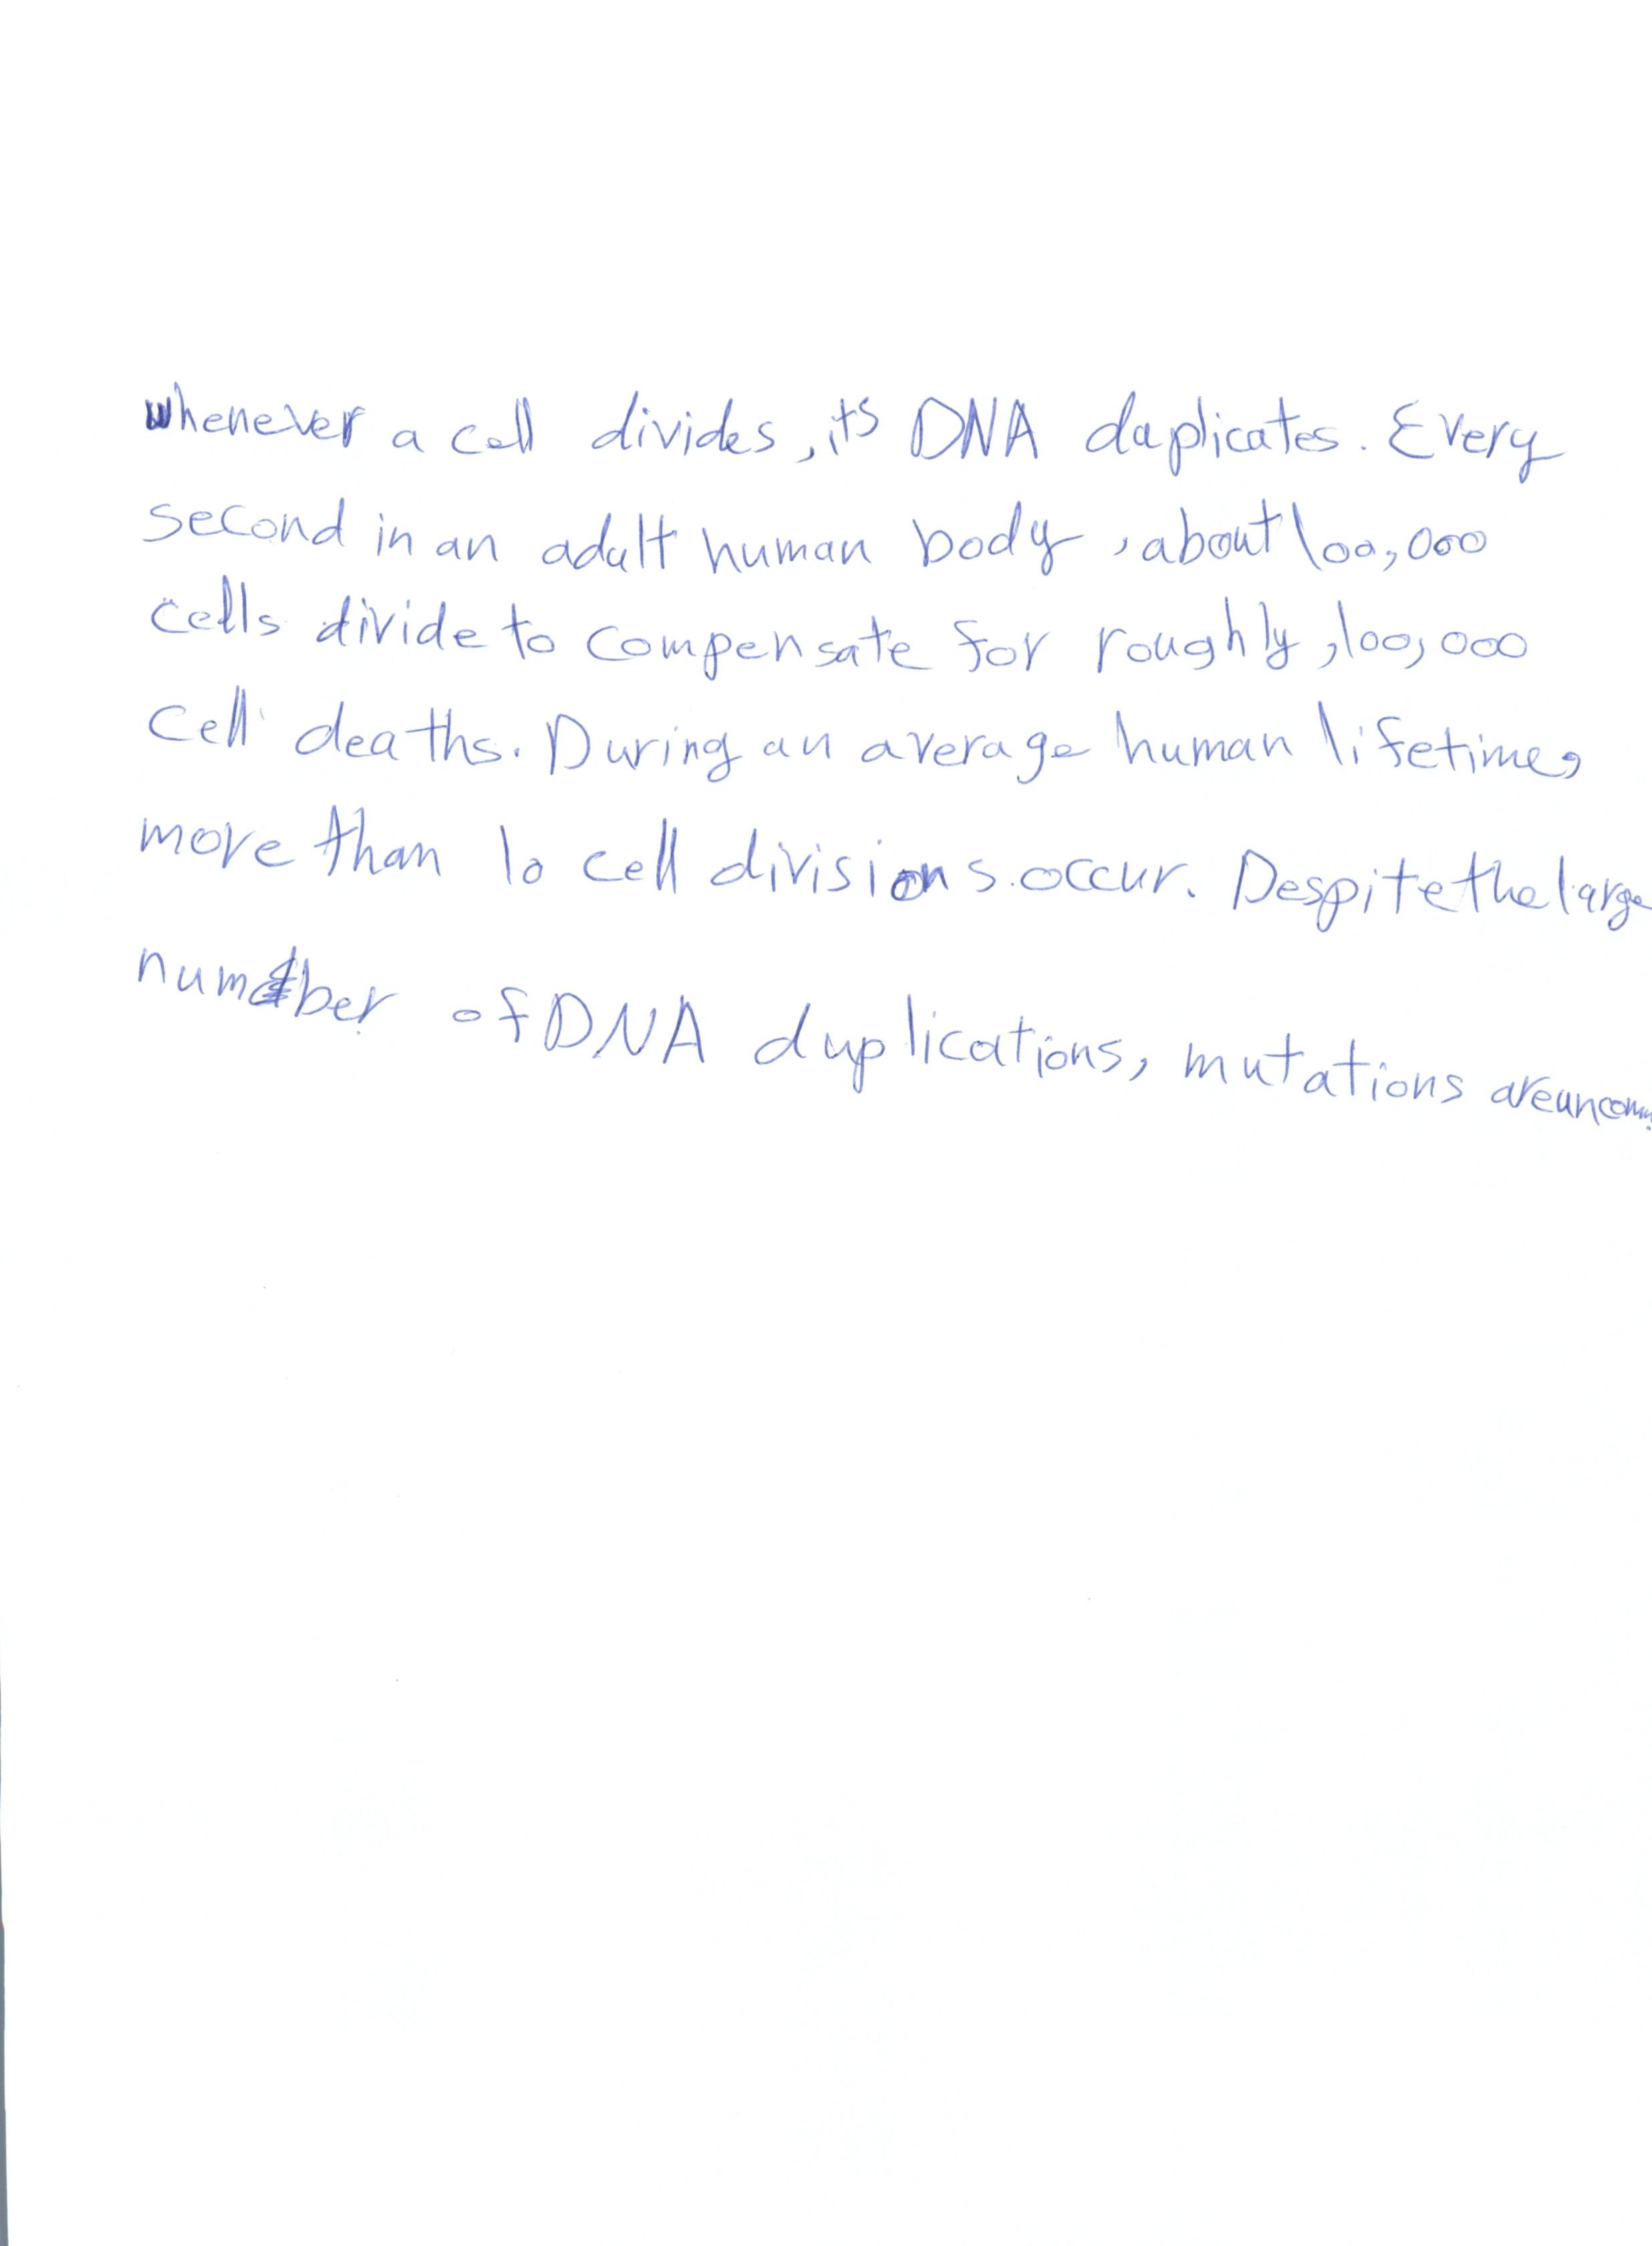 whenever a cell divides, its DNA duplicates. Every
second in an adult human body, about 100,000
cells divide to compensate for roughly ,100,000
cell deaths. During an average human lifetime,
more than 10 cell divisions.occur. Despite the large
number of DNA duplications, mutations are